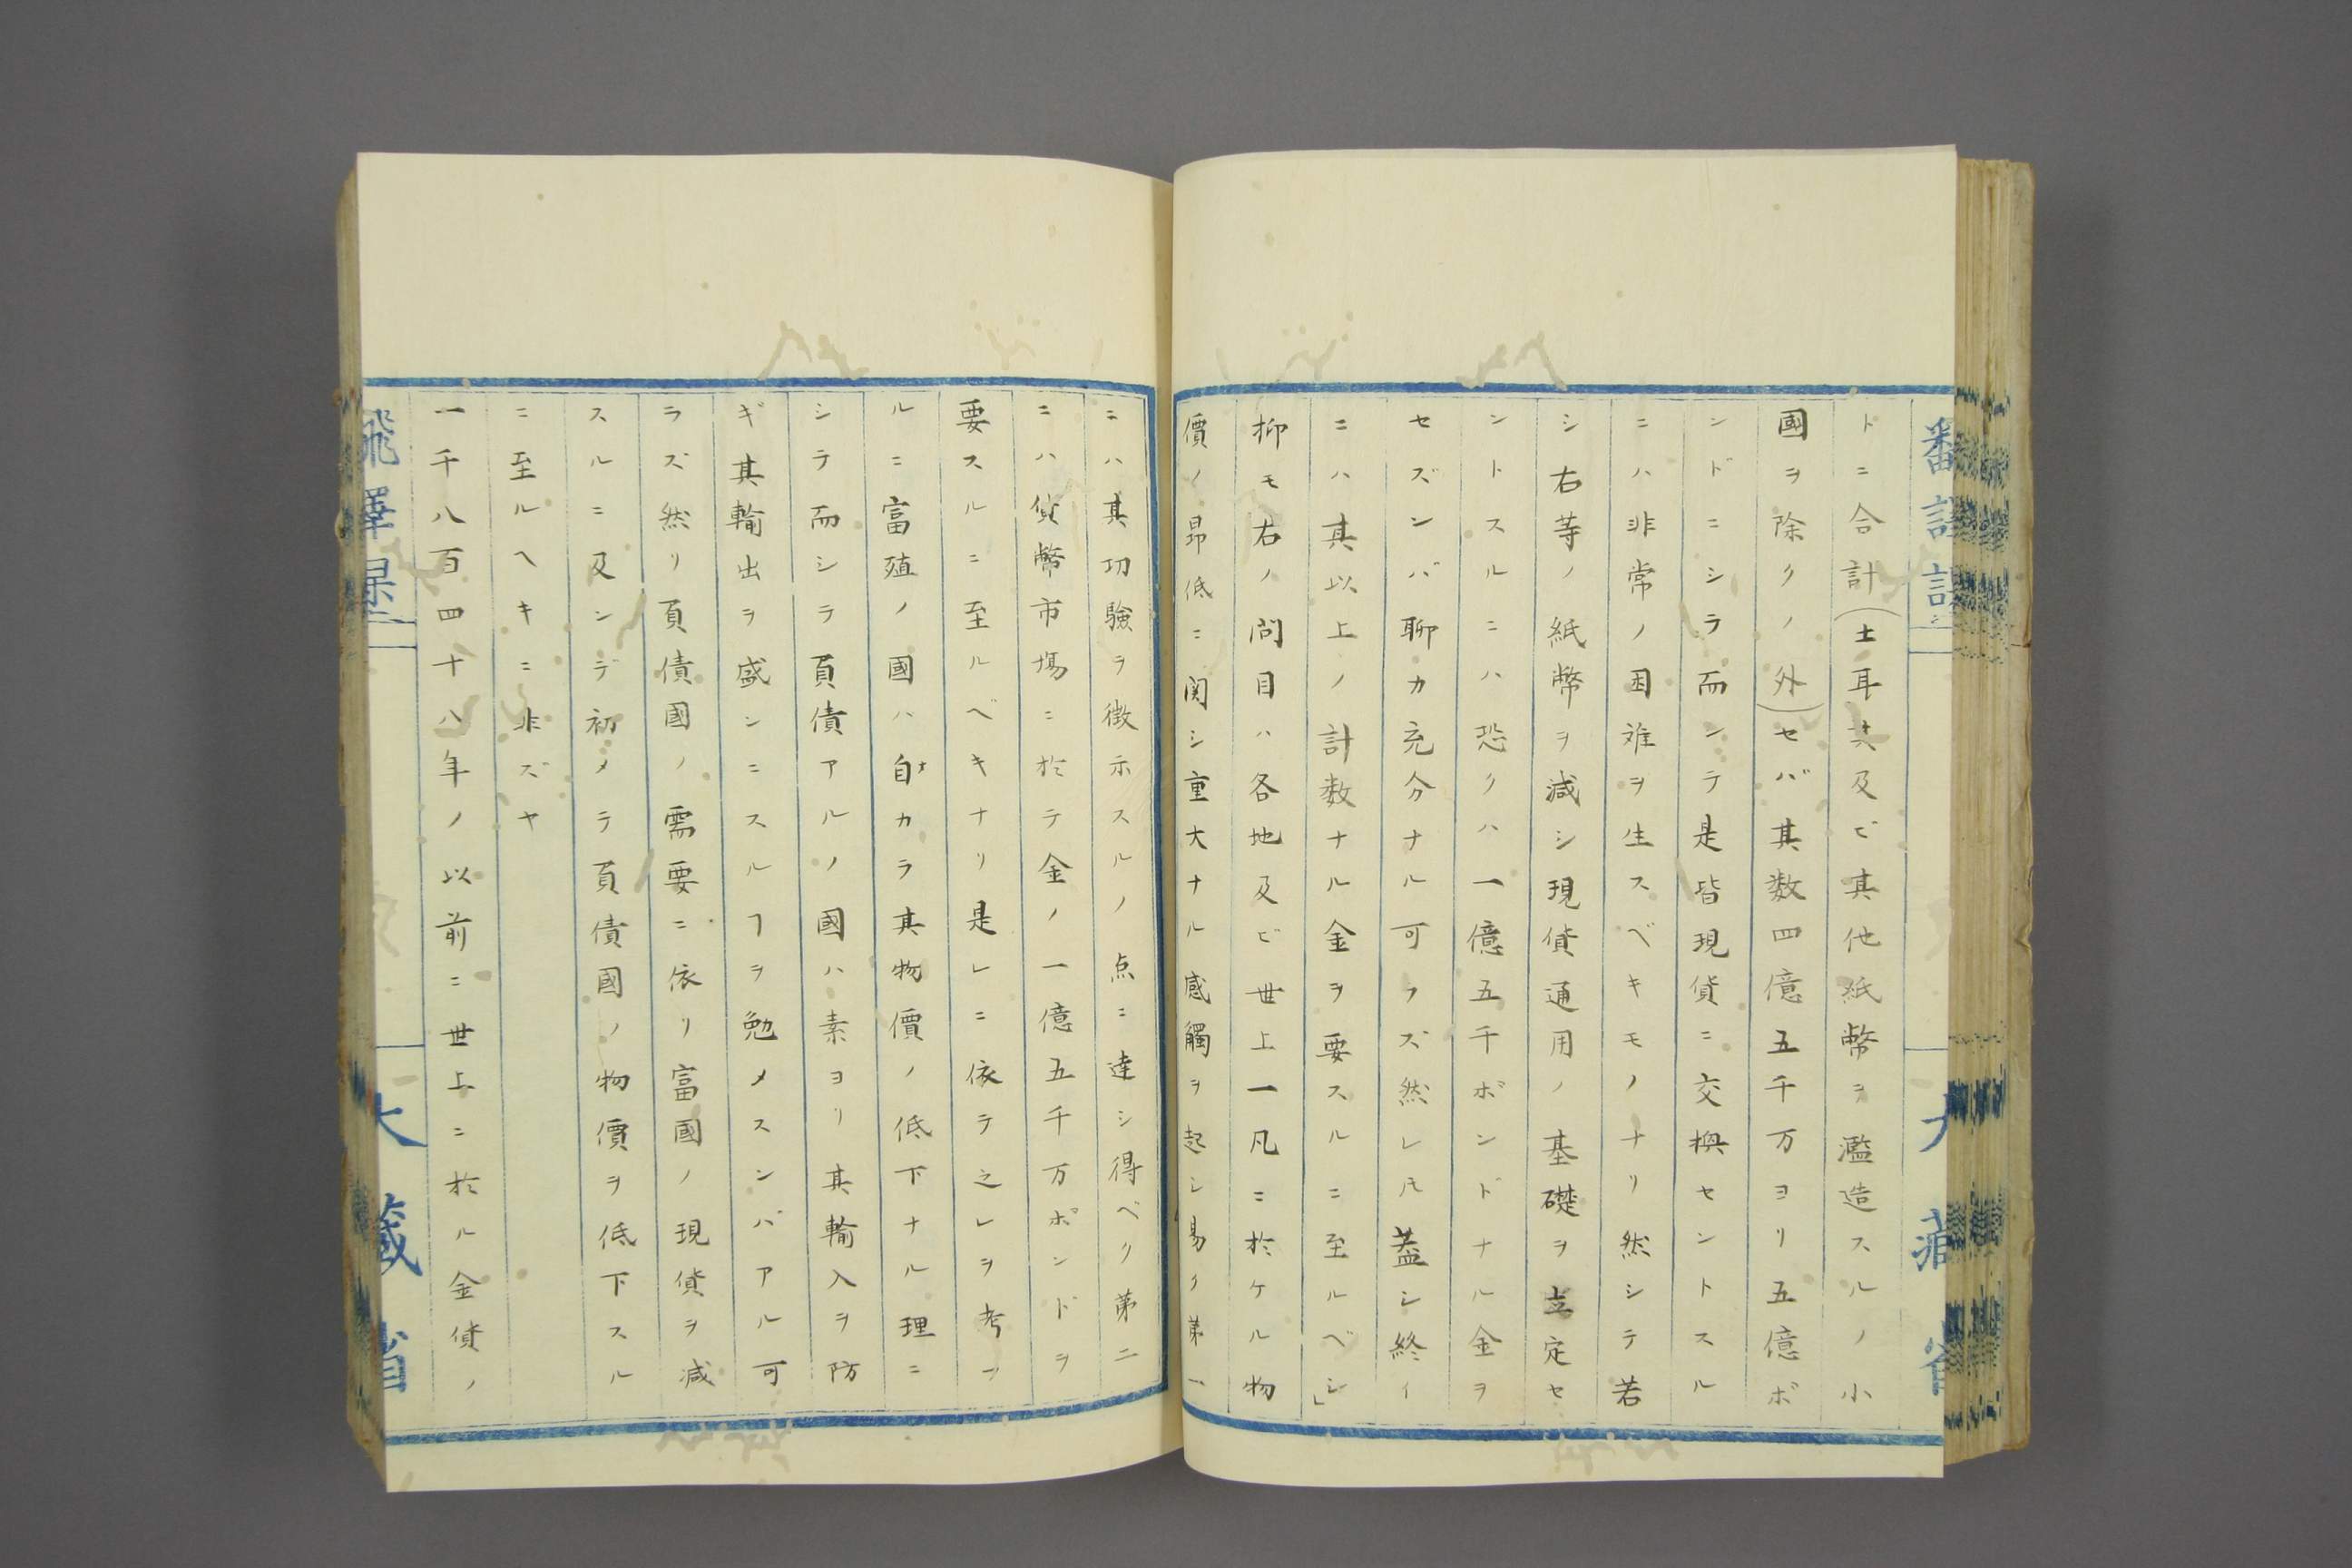 トニ合計(土耳其及ビ其他紙幣ヲ濫造スルノ小
國ヲ除クノ外)セバ其数四億五千万ヨリ五億ポ
ンドニシテ而シテ是皆現貨ニ交換セントスル
ニハ非常ノ困难ヲ生スベキモノナリ然シテ若
シ右等ノ紙幣ヲ減シ現貨通用ノ基礎ヲ立定セ
ントスルニハ恐クハ一億五千ポンドナル金ヲ
セズンバ聊カ充分ナル可ラズ然レ𪜈蓋シ終イ
ニハ其以上ノ計数ナル金ヲ要スルニ至ルベシ」
抑モ右ノ問目ハ各地及ビ世上一凡ニ於ケル物
價ノ昂低ニ関シ重大ナル感觸ヲ起シ易ク第一
ニハ其功驗ヲ徴示スルノ点ニ達シ得ベク第二
ニハ貨幣市塲ニ於テ金ノ一億五千万ポンドヲ
要スルニ至ルベキナリ是レニ依テ之レヲ考フ
ルニ富殖ノ國ハ自カラ其物價ノ低下ナル理ニ
シテ而シテ負債アルノ國ハ素ヨリ其輸入ヲ防
ギ其輸出ヲ盛ンニスルヿヲ勉メスンバアル可
ラズ然リ負債國ノ需要ニ依リ富國ノ現貨ヲ減
スルニ及ンデ初メテ負債國ノ物價ヲ低下スル
ニ至ルヘキニ非ズヤ
一千八百四十八年ノ以前ニ世上ニ於ル金貨ノ
大藏省